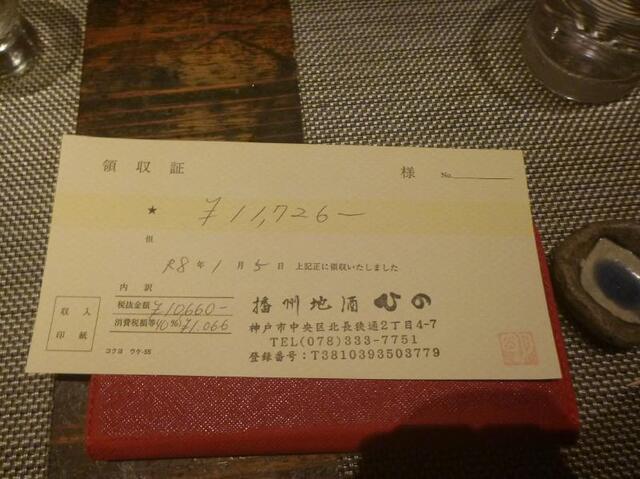 領収証 様 No.
★ ¥11,726-
但
R8年1月5日 上記正に領収いたしました
内訳
収入印紙
税抜金額 ¥10,660-
消費税額等(10%) ¥1,066
コクヨ ウケ-55
播州地酒 ひの
神戸市中央区北長狭通2丁目4-7
TEL(078)333-7751
登録番号:T3810393503779